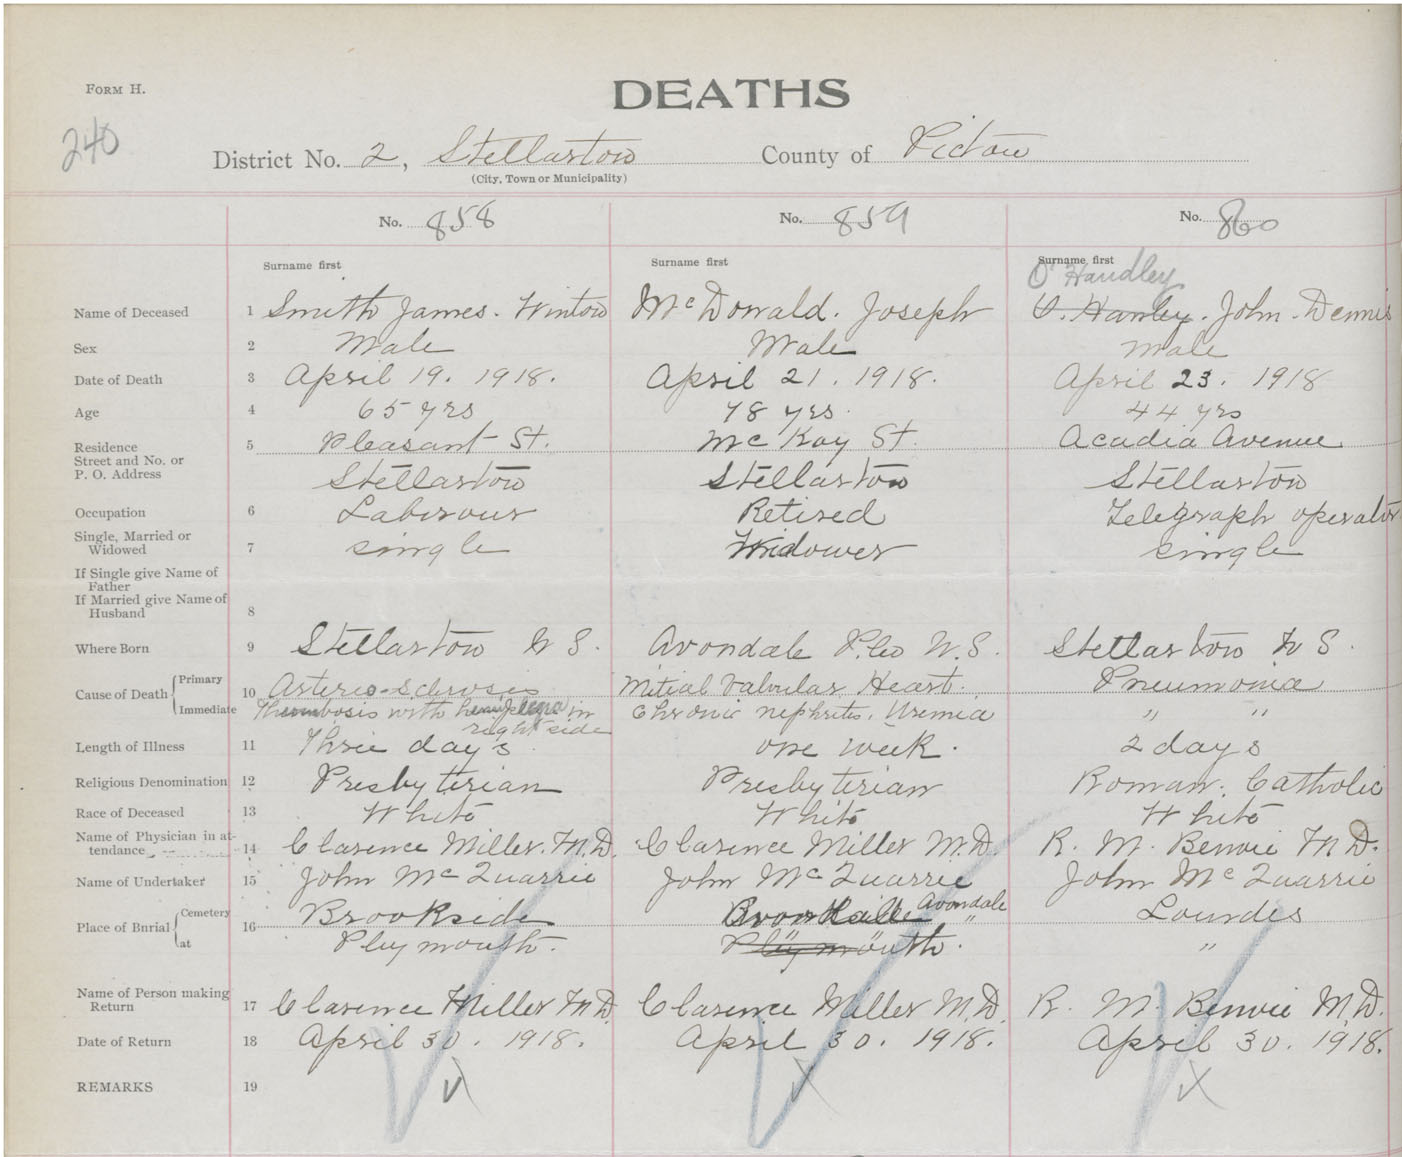 FORM H.
DEATHS
240
District No. 2, Stellarton County of Pictou
(City, Town or Municipality)
No. 858 No. 859 No. 860
Surname first Surname first Surname first
O'Handley
Name of Deceased 1 Smith James. Winton McDonald. Joseph O. Hanley. John. Dennis
Sex 2 Male Male Male
Date of Death 3 April 19. 1918. April 21. 1918. April 23. 1918
Age 4 65 yrs 78 yrs. 44 yrs
Residence 5 Pleasant St. McKay St. Acadia Avenue
Street and No. or
P. O. Address Stellarton Stellarton Stellarton
Occupation 6 Labourour Retired Telegraph operator
Single, Married or
Widowed 7 single Widower single
If Single give Name of
Father
If Married give Name of
Husband 8
Where Born 9 Stellarton N S. Avondale P.Co N.S. Stellarton N S.
Cause of Death Primary 10 Arterio-sclerosis Mitral Valvular Heart. Pneumonia
Immediate Thrombosis with hemiplegia in Chronic nephritis, Uremia " "
right side
Length of Illness 11 Three days one week. 2 days
Religious Denomination 12 Presbyterian Presbyterian Roman. Catholic
Race of Deceased 13 White White White
Name of Physician in at-
tendance 14 Clarence Miller. M.D. Clarence Miller M.D. R. M. Benvie M D.
Name of Undertaker 15 John McQuarrie John McQuarrie John McQuarrie
Place of Burial Cemetery 16 Brookside Avondale Lourdes
at Plymouth. Plymouth. " "
Name of Person making
Return 17 Clarence Miller M.D. Clarence Miller M.D. R. M. Benvie M.D.
Date of Return 18 April 30. 1918. April 30. 1918. April 30. 1918.
REMARKS 19